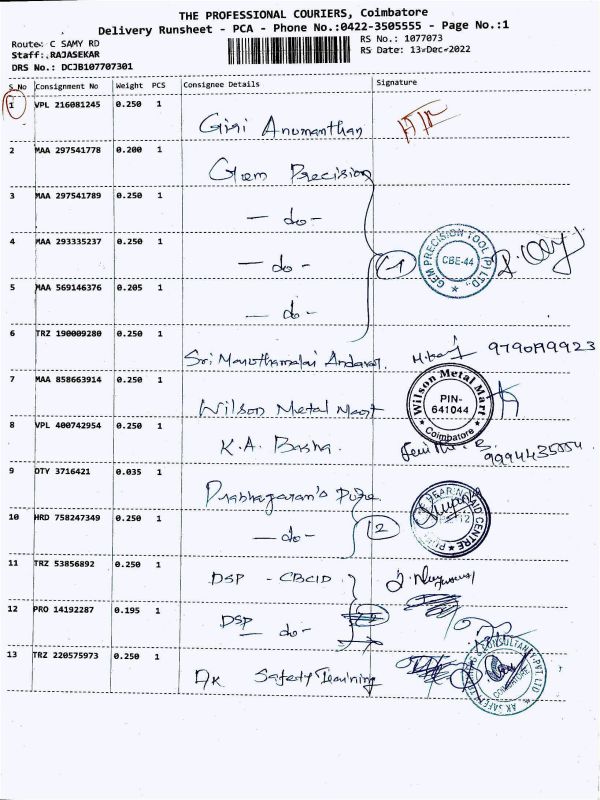 THE PROFESSIONAL COURIERS, Coimbatore
Delivery Runsheet - PCA - Phone No.:0422-3505555 - Page No.:1
Route: C SAMY RD
RS No.: 1077073
Staff:.RAJASEKAR
RS Date: 13-Dec-2022
DRS No.: DCJB107707301
S.No Consignment No Weight PCS Consignee Details Signature
1 VPL 216081245 0.250 1
Giri Anumanthan
2 MAA 297541778 0.200 1
Gem Precision
3 MAA 297541789 0.250 1
- do -
4 MAA 293335237 0.250 1
- do -
GEM PRECISION TOOL (P) LTD.,
CBE-44
5 MAA 569146376 0.205 1
- do -
6 TRZ 190009280 0.250 1
Sri Maruthamalai Andavar.
7 MAA 858663914 0.250 1
Wilson Metal Mart
Wilson Metal Mart
PIN-
641044
Coimbatore
8 VPL 400742954 0.250 1
K.A. Basha.
9994435554
9 DTY 3716421 0.035 1
Prabhagaran's Pure
10 HRD 758247349 0.250 1
- do -
2
HEARING AID CENTRE
11 TRZ 53856892 0.250 1
DSP - CBCID
12 PRO 14192287 0.195 1
DSP
- do -
13 TRZ 220575973 0.250 1
AK Safety Training
AK SAFETY TRAINING & CONSULTANCY PVT. LTD
COIMBATORE